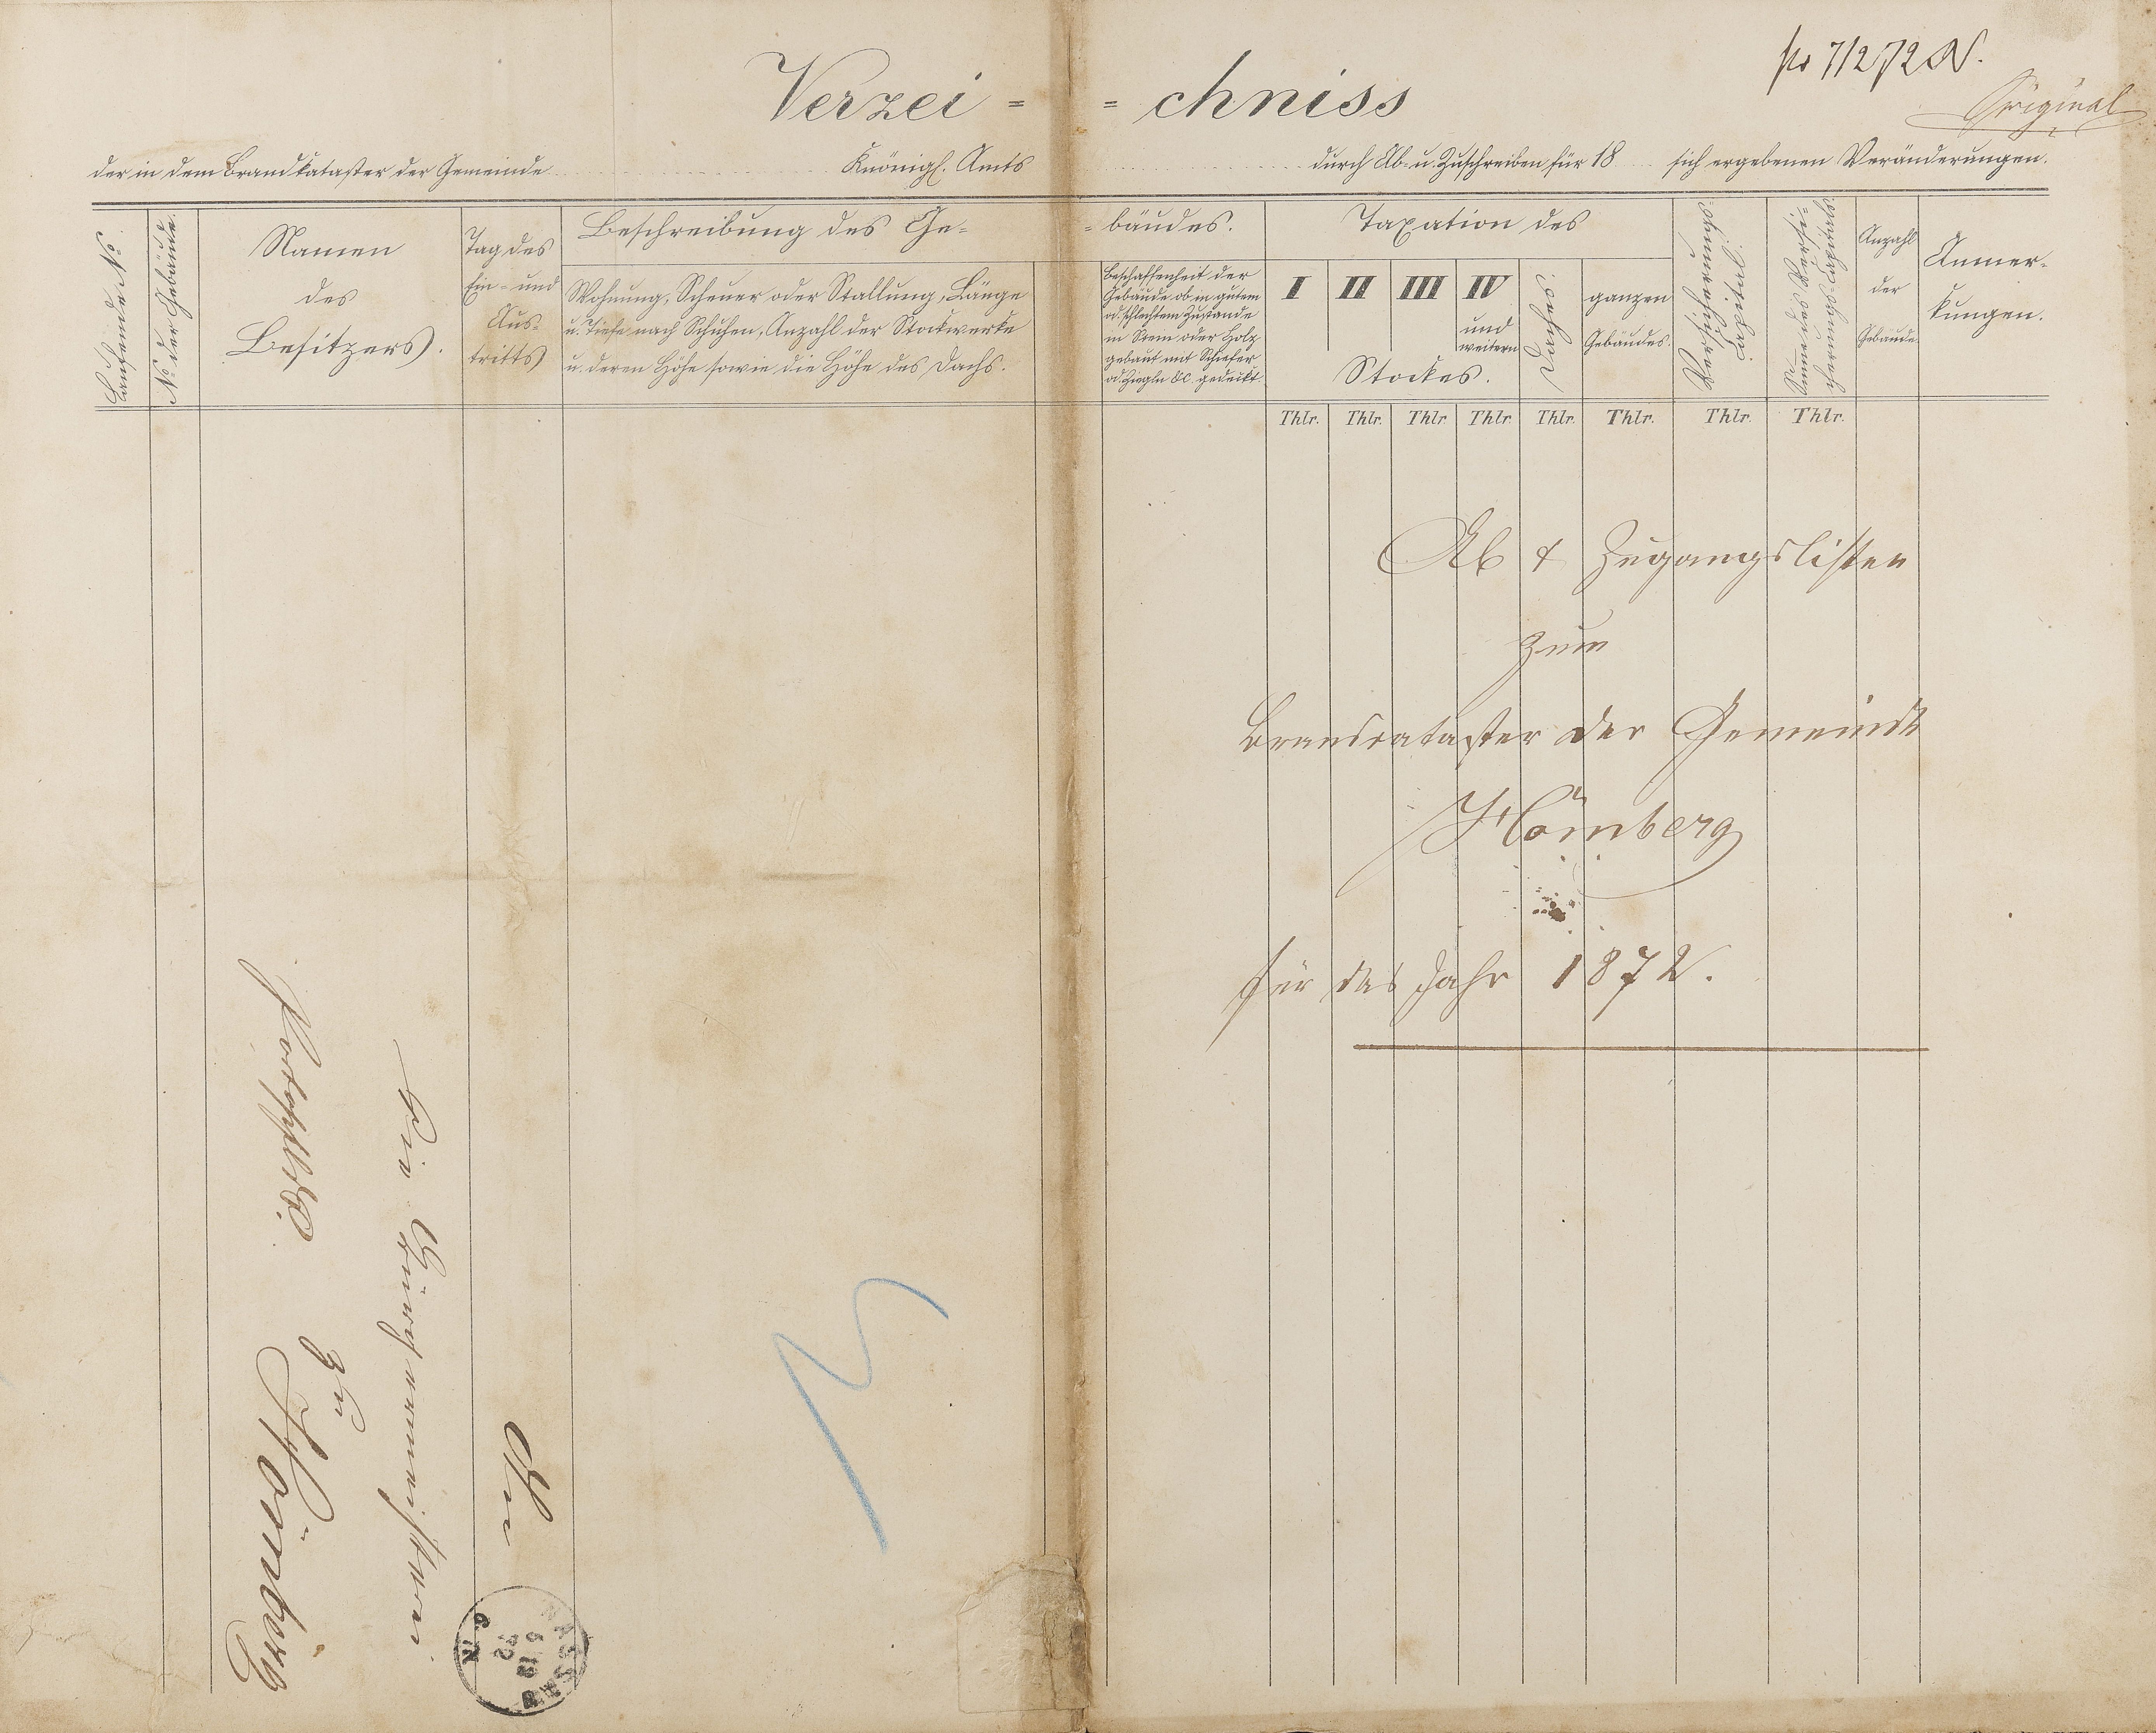 pr 7/12 72 N.
Original
Verzei = = chniss
der in dem Brandkataster der Gemeinde Königl. Amts durch Ab- u. Zuschreiben für 18 sich ergebenen Veränderungen.
Laufende No.
No. der Gebäude.
Namen
des
Besitzers.
Tag des
Ein- und
Aus-
tritts
Beschreibung des Ge= =bäudes.
Wohnung, Scheuer oder Stallung, Länge
u. Tiefe nach Schuhen, Anzahl der Stockwerke
u. deren Höhe sowie die Höhe des Dachs.
Beschaffenheit der
Gebäude ob in gutem
od. schlechtem Zustande
in Stein oder Holz
gebaut mit Schiefer
od. Ziegln &c. gedeckt
Taxation des
I II III IV
und
weitern
Stockes.
Daches.
ganzen
Gebäudes.
Versicherungs-
Capital.
Summe des Versi-
cherungs-Capitals.
Anzahl
der
Gebäude.
Anmer-
kungen.
Thlr. Thlr. Thlr. Thlr. Thlr. Thlr. Thlr. Thlr.
Ab & Zugangslisten
zum
Brandcataster der Gemeinde
Hömberg
für das Jahr 1872.
An
die Bürgermeisterei
zu
Hömberg
NASSAU
6 12
72